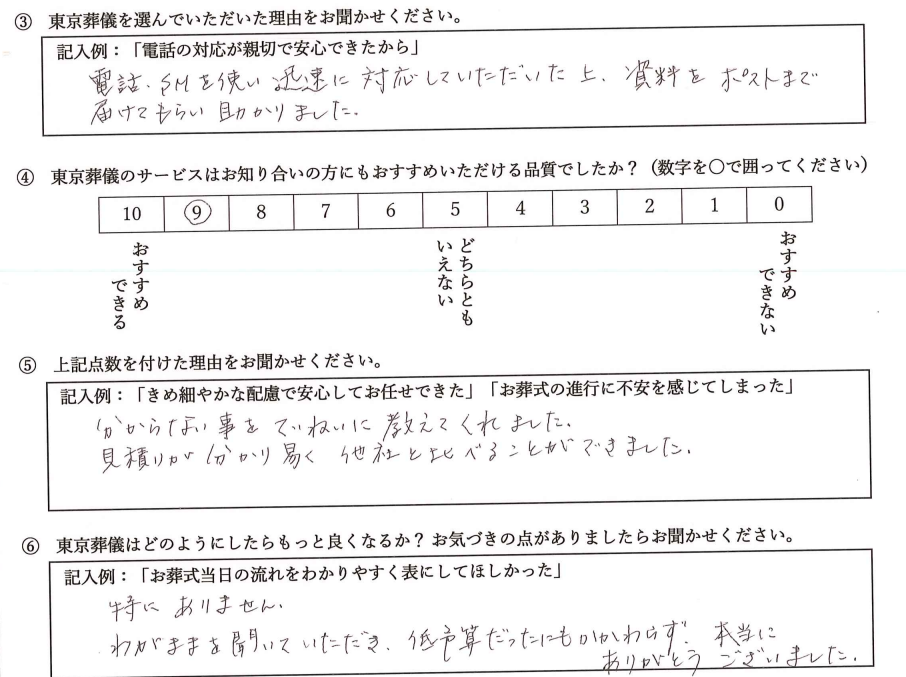 ③ 東京葬儀を選んでいただいた理由をお聞かせください。
記入例:「電話の対応が親切で安心できたから」
電話、SMを使い迅速に対応していただいた上、資料をポストまで
届けてもらい助かりました。
④ 東京葬儀のサービスはお知り合いの方にもおすすめいただける品質でしたか?(数字を○で囲ってください)
10 9 8 7 6 5 4 3 2 1 0
おすすめできる
どちらともいえない
おすすめできない
⑤ 上記点数を付けた理由をお聞かせください。
記入例:「きめ細やかな配慮で安心してお任せできた」「お葬式の進行に不安を感じてしまった」
分からない事をていねいに教えてくれました。
見積りが分かり易く他社と比べることができました。
⑥ 東京葬儀はどのようにしたらもっと良くなるか?お気づきの点がありましたらお聞かせください。
記入例:「お葬式当日の流れをわかりやすく表にしてほしかった」
特にありません。
わがままを聞いていただき、低予算だったにもかかわらず、本当に
ありがとうございました。